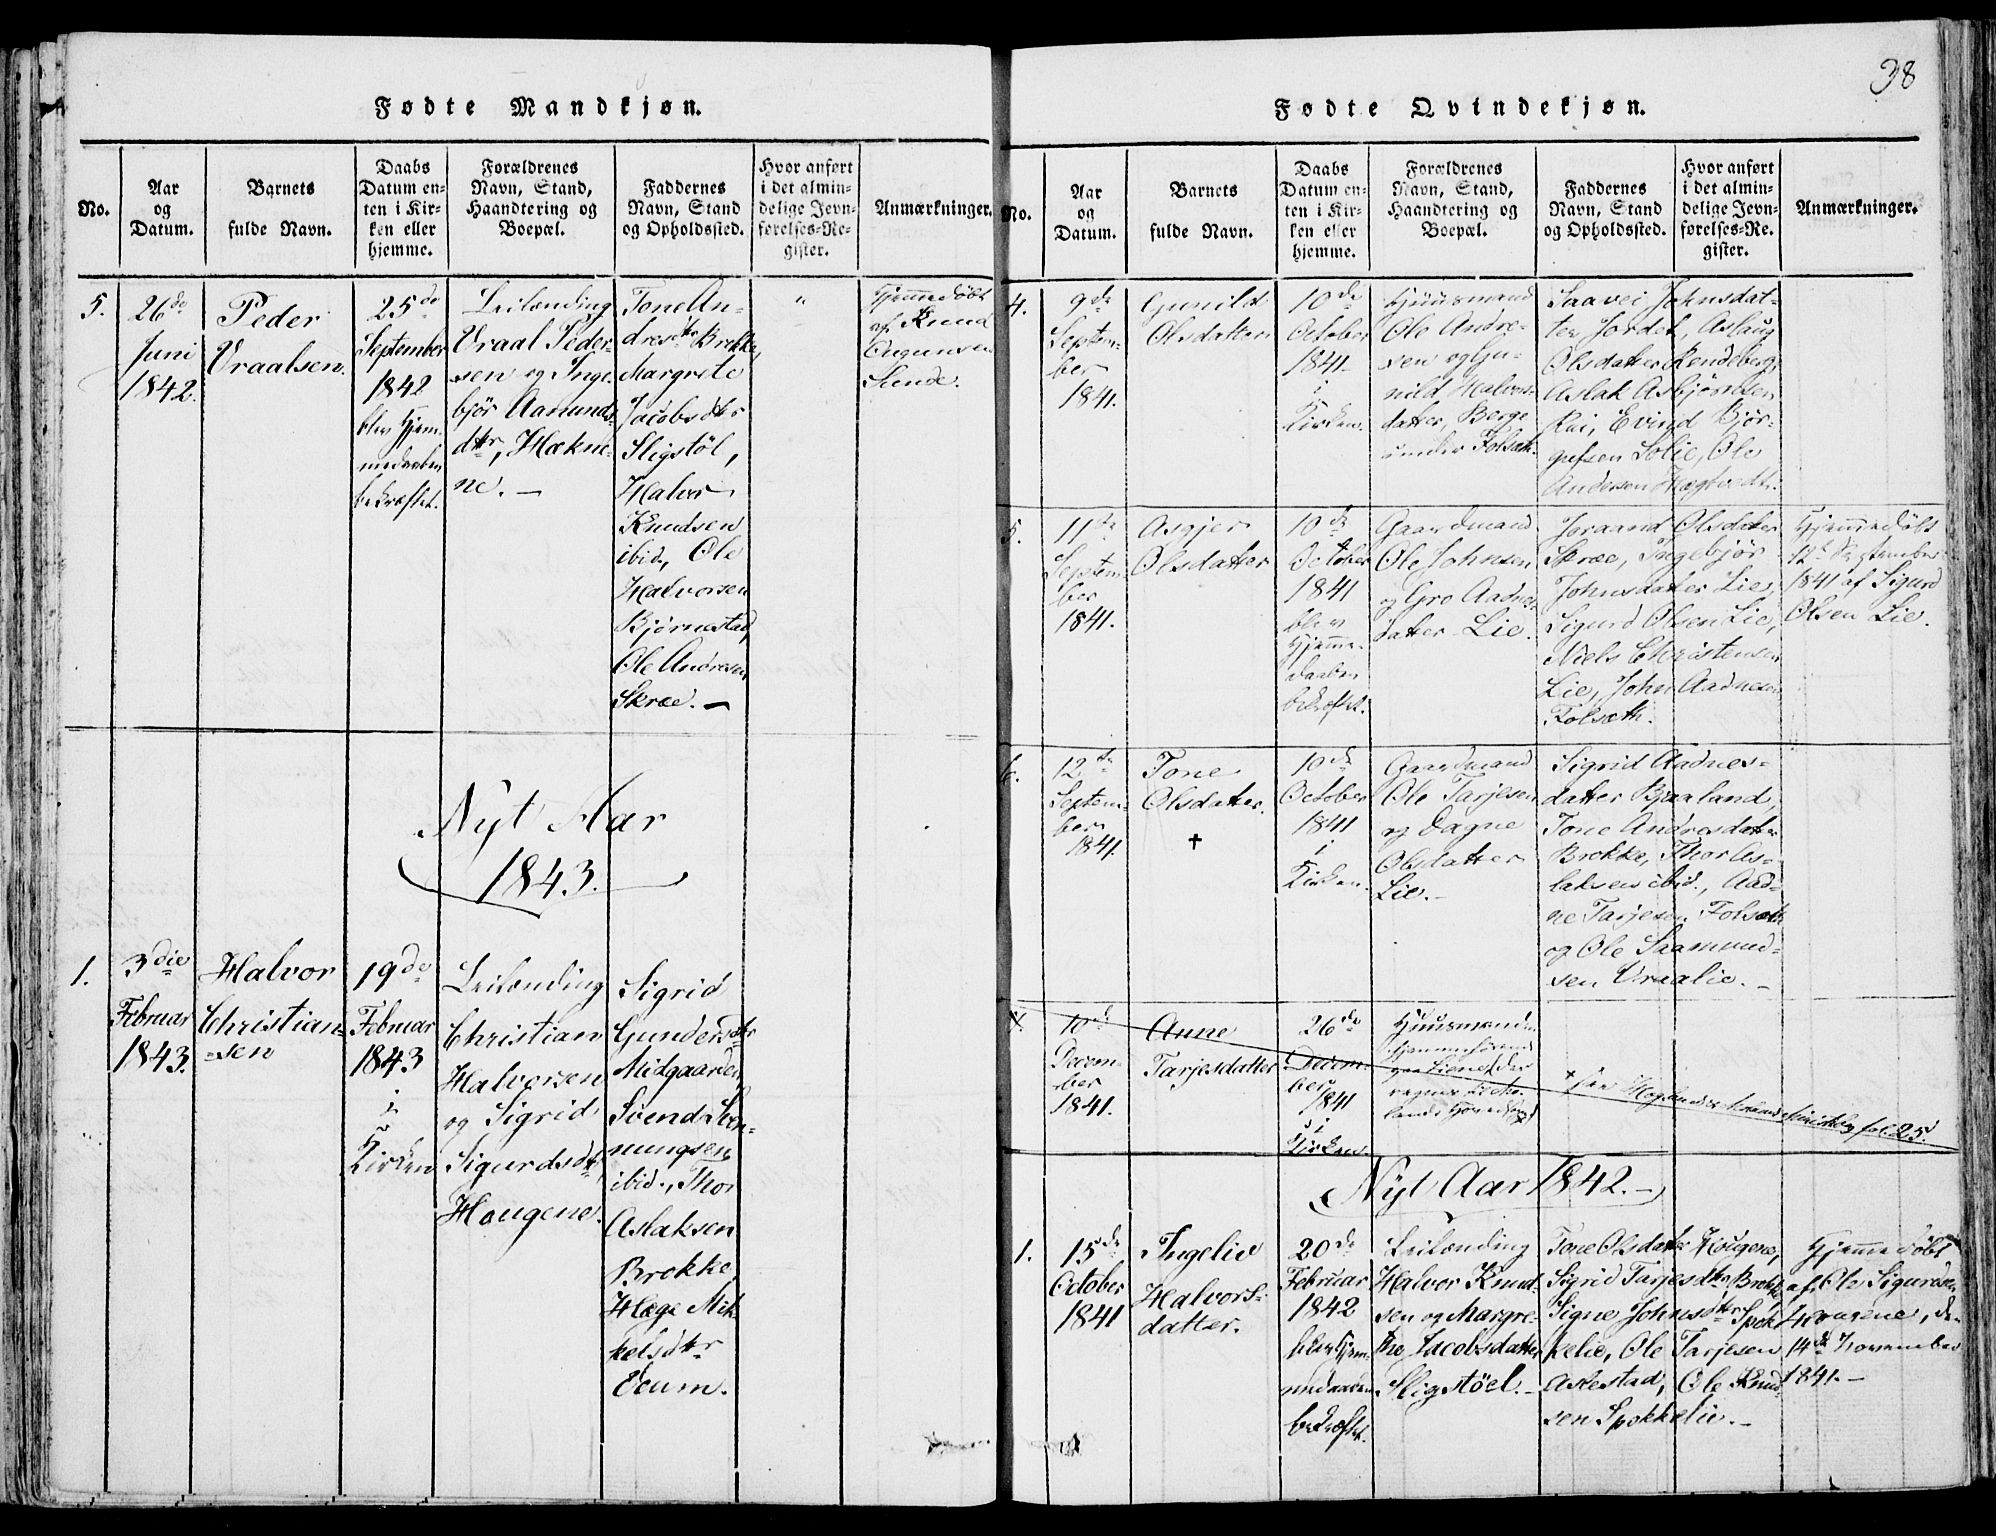 Fødte Mandkjøn.
No.
Aar
og
Datum.
Barnets
fulde Navn.
Daabs
Datum en-
ten i Kir-
ken eller
hjemme.
Forældrenes
Navn, Stand,
Haandtering og
Boepæl.
Faddernes
Navn, Stand
og Opholdssted.
Hvor anført
i det almin-
delige Jevn-
førelses-Re-
gister.
Anmærkninger.
5.
26de
Juni
1842.
Peder
Vraalsen.
25de
September
1842
blev Hjem-
medaaben
bekræftet.
Leilænding
Vraal Peder-
sen og Inge-
bjør Aamunds-
dtr, Hækne-
ne. —
Tone An-
dresdtr Brekke,
Margrete
Jacobsdtr
Sligstøl,
Halvor
Knudsen
ibid, Ole
Halvorsen
Bjørnestad,
Ole Andresen
Skree. —
"
Hjemmedøbt
af Knud
Nyt Aar
1843.
1.
3die
Februar
1843.
Halvor
Christian-
-sen
19de
Februar
1843
i
Kirken
Leilænding
Christian
Halvorsen
og Sigrid
Sigurdsdtr,
Haugene.
Sigrid
Gundersdtr
Midgaarden,
Svend Svn-
nungsen
ibid., Thor
Aslaksen
Brekke,
Hæge Mik-
kelsdtr
Veum.
38
Fødte Qvindekjøn.
No.
Aar
og
Datum.
Barnets
fulde Navn.
Daabs
Datum en-
ten i Kir-
ken eller
hjemme.
Forældrenes
Navn, Stand,
Haandtering og
Boepæl.
Faddernes
Navn, Stand
og Opholdssted.
Hvor anført
i det almin-
delige Jevn-
førelses-Re-
gister.
Anmærkninger.
4.
9de
Septem-
ber
1841.
Gunild
Olsdatter
10de
October
1841.
i
Kirken.
Huusmand
Ole Andre-
sen og Gu-
nild Halvors-
datter, Berge
under Folsæth.
Saavei Johnsdat-
ter Jordet, Aslaug
Olsdatter Rendeberg,
Aslak Asbjørnsen
Rui, Evind Bjør-
gufsen Solie, Ole
Andersen Hægtvedt.
5.
11te
Septem-
ber
1841.
Asgjer
Olsdatter
10de
October
1841
blev
Hjemme-
daaben
bekræftet.
Gaardmand
Ole Johnsen
og Gro Aadnes-
datter Lie.
Joraand Olsdatter
Skree, Ingebjør
Johnsdatter Lie,
Sigurd Olsen Lie,
Niels Christensen
Lie, John Aadnesen
Folsæth.
Hjemmedøbt
12te September
1841 af Sigurd
Olsen Lie.
6.
12te
Septem-
ber
1841.
Tone
Olsdatter.
✝
10de
October
1841
i
Kirken.
Gaardmand
Ole Tarjesen
og Dagne
Olsdatter
Lie.
Sigrid Aadnes-
datter Bjaaland,
Tone Andresdatter
Brekke, Thor As-
laksen ibid., Aad-
ne Tarjesen Folsæth
og Ole Saamund-
sen Vraalie. —
10de
Decem-
ber
1841.
Anne
Tarjesdatter
26de
Decem-
ber
1841
i
Kirken.
Huusmand
fol. 25.
Nyt Aar 1842. —
1.
15de
October
1841
Ingeliv
Halvors-
datter.
20de
Februar
1842
blev Hjem-
medaaben
bekræftet.
Leilænding
Halvor Knud-
sen og Margre-
the Jacobsdatter
Sligstøel. —
Tone Olsdatter Hougene,
Sigrid Tarjesdtr Brekke,
Signe Johnsdtr Spok-
kelie, Ole Tarjesen
Askestad, Ole Knud-
sen Spokkelie. —
Hjemmedøbt
af Ole Sigurdsen
Hougene, d.
14de November
1841. —